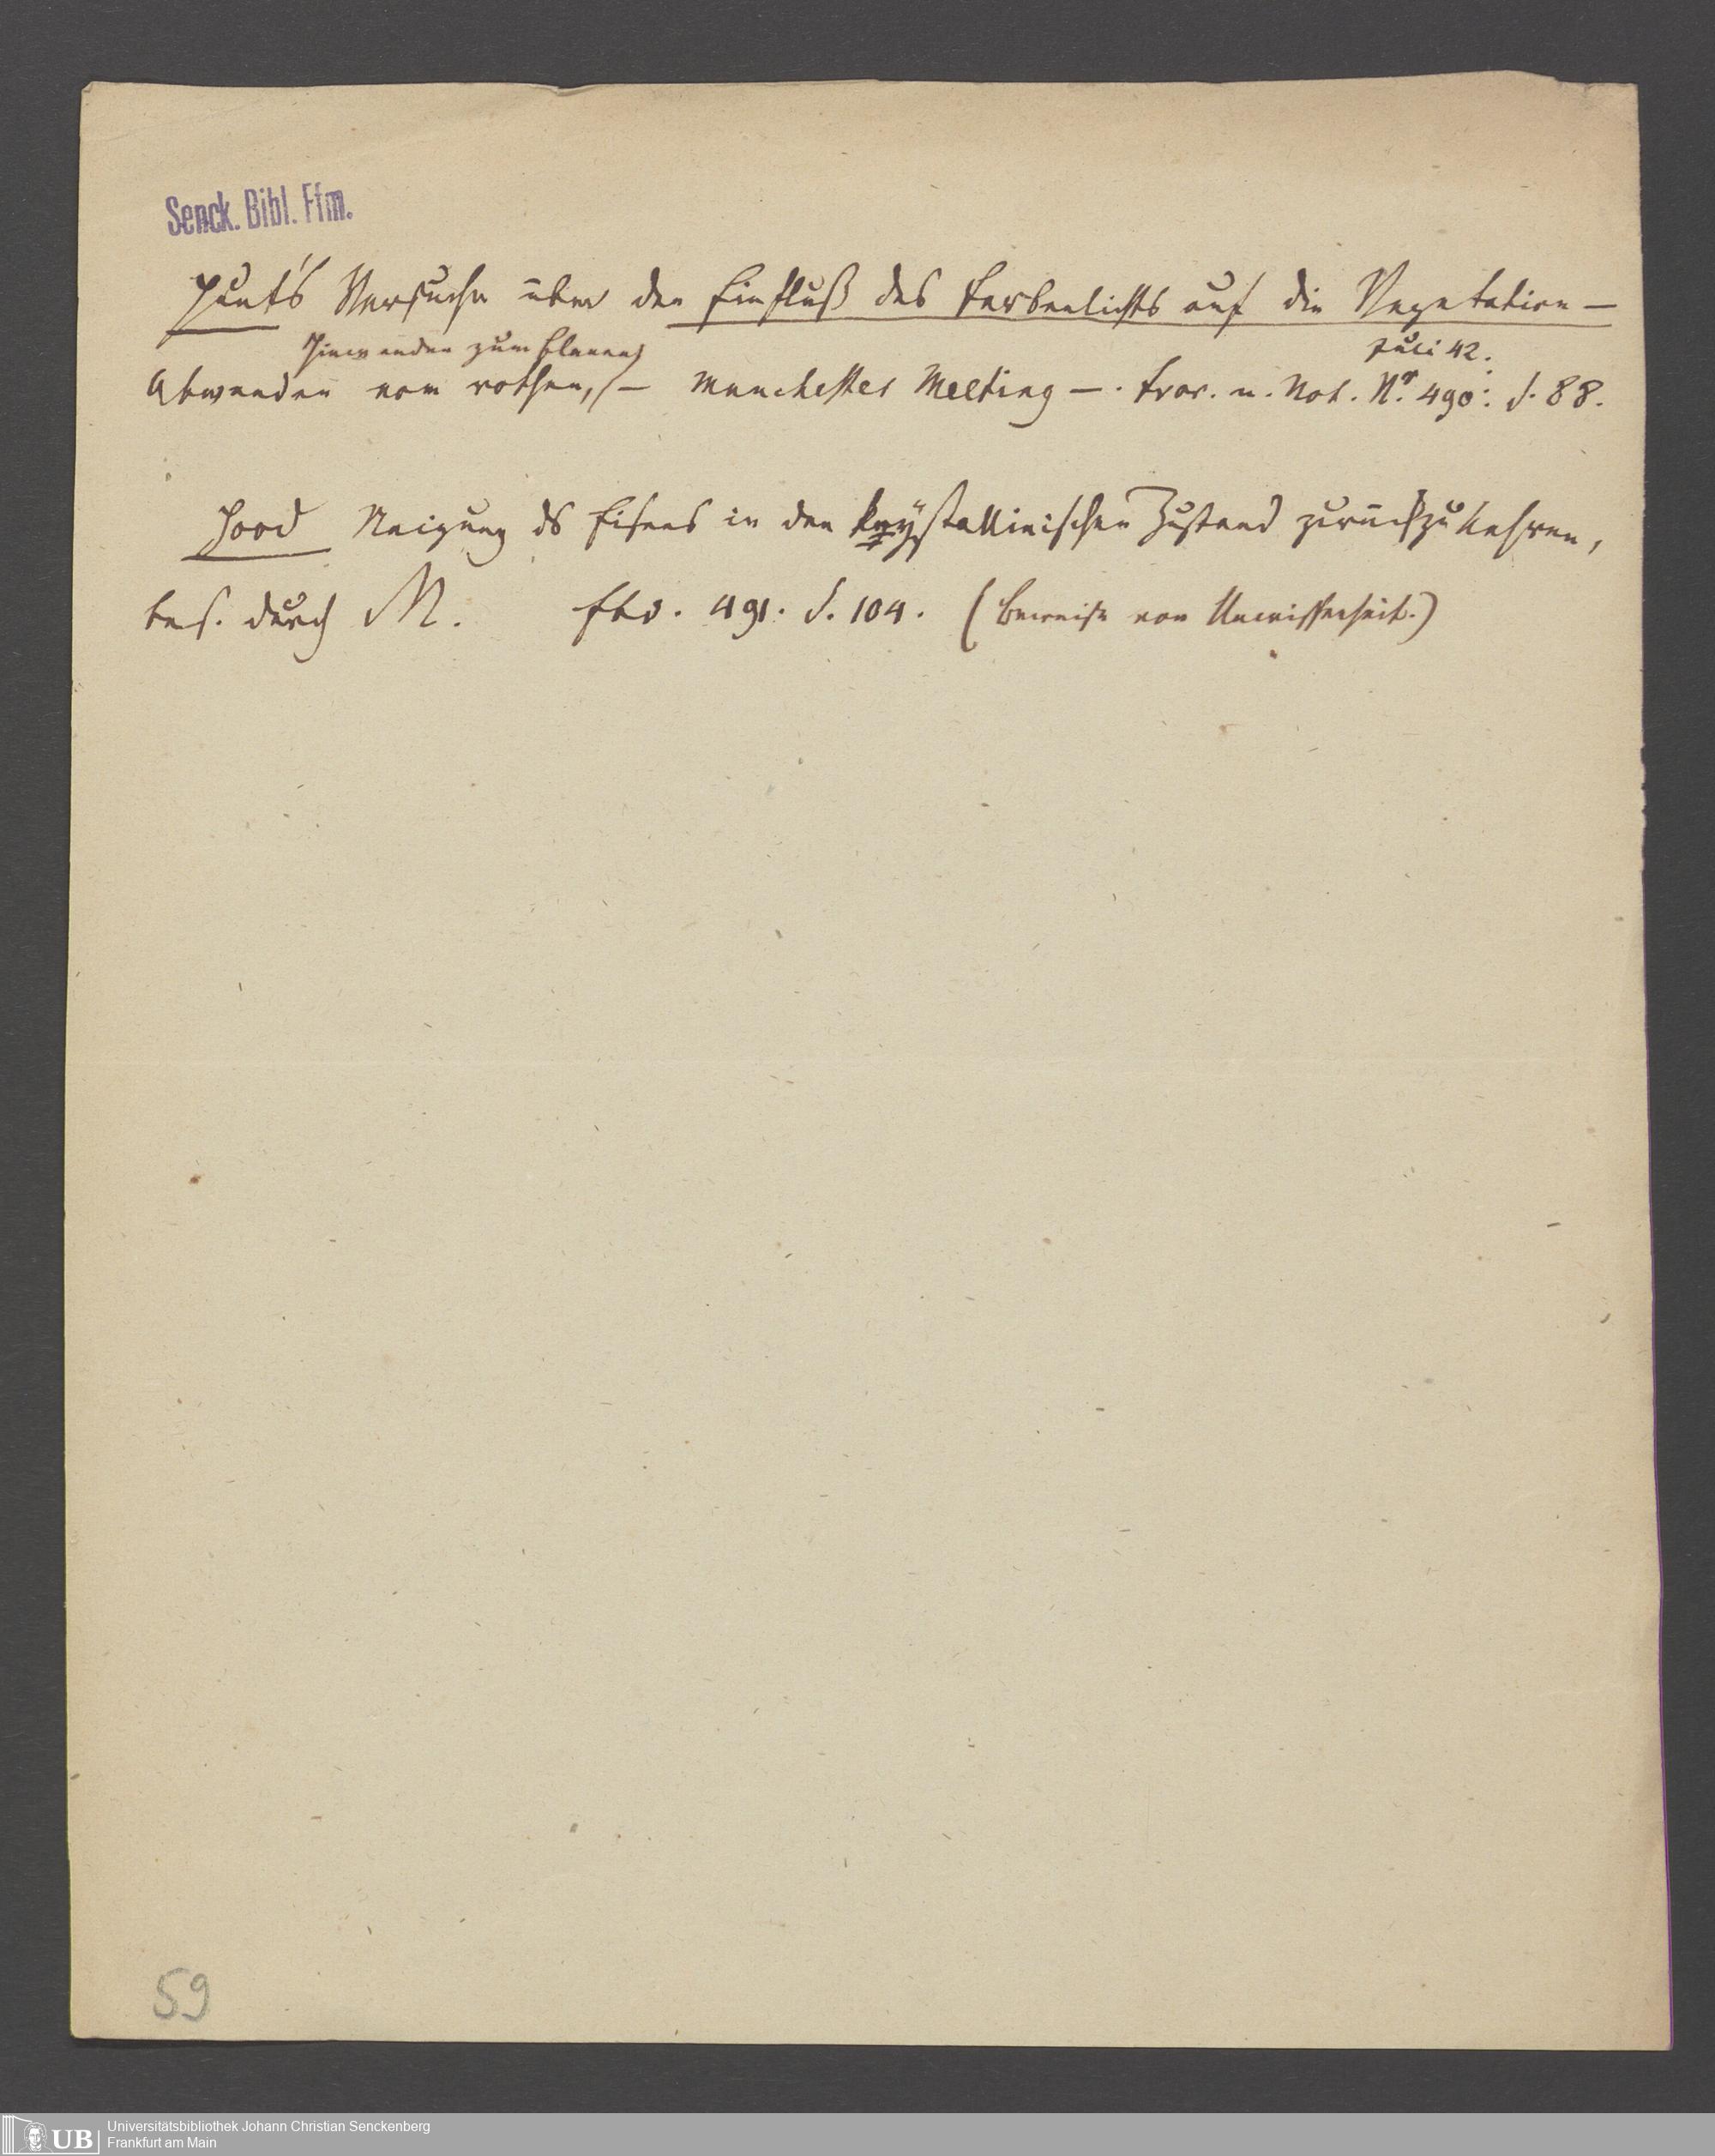 Senck. Bibl. Ffm.
Hunt's Versuche über den Einfluß des Farbenlichts auf die Vegetation —
Hinwenden zum blauen Juli 42.
Abwenden vom rothen, — Manchester Meeting —. Fror. n. Not. Nr. 490. S. 88.
Hood Neigung ds Eisens in den krystallinischen Zustand zurückzukehren,
bes. durch M. Ebd. 491. S. 104. (Beweise von Unwissenheit.)
59
UB
Universitätsbibliothek Johann Christian Senckenberg
Frankfurt am Main